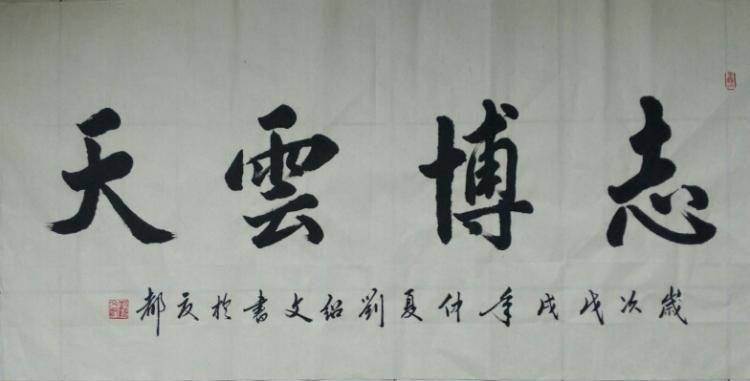 志博雲天
歲次戊戌年仲夏劉紹文書於京都